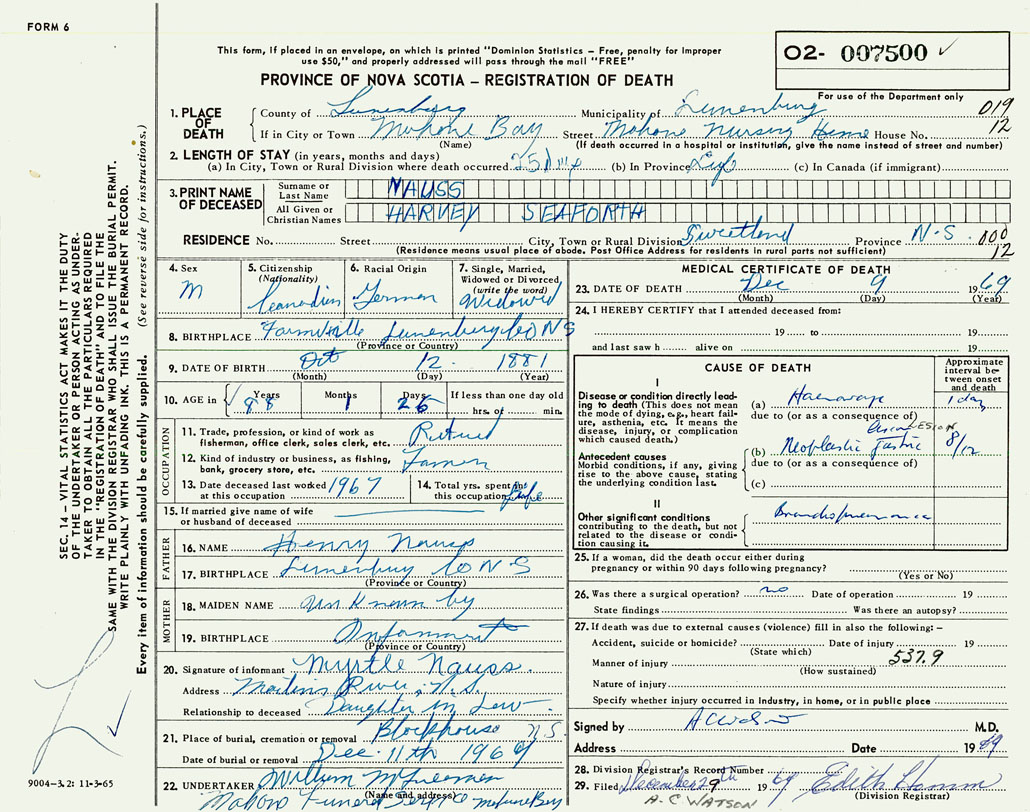 FORM 6
This form, if placed in an envelope, on which is printed "Dominion Statistics – Free, penalty for improper
use $50," and properly addressed will pass through the mail "FREE"
PROVINCE OF NOVA SCOTIA – REGISTRATION OF DEATH
O2- 007500 ✓
For use of the Department only
1. PLACE OF DEATH
County of Lunenburg Municipality of Lunenburg 019
If in City or Town Mahone Bay Street Mahone Nursing Home House No. 12
(Name) (If death occurred in a hospital or institution, give the name instead of street and number)
2. LENGTH OF STAY (in years, months and days)
(a) In City, Town or Rural Division where death occurred (b) In Province Life (c) In Canada (if immigrant)
3. PRINT NAME OF DECEASED
Surname or Last Name NAUSS
All Given or Christian Names HARVEY SEAFORTH
RESIDENCE No. Street City, Town or Rural Division Sweetland Province N.S. 000
(Residence means usual place of abode. Post Office Address for residents in rural parts not sufficient) 12
4. Sex M
5. Citizenship (Nationality) Canadian
6. Racial Origin German
7. Single, Married, Widowed or Divorced (write the word) Widowed
8. BIRTHPLACE Farmville Lunenburg Co N S
(Province or Country)
9. DATE OF BIRTH Oct 12 1881
(Month) (Day) (Year)
10. AGE in Years 88 Months 1 Days 26 If less than one day old hrs. or min.
OCCUPATION
11. Trade, profession, or kind of work as fisherman, office clerk, sales clerk, etc. Retired
12. Kind of industry or business, as fishing, bank, grocery store, etc. Farmer
13. Date deceased last worked at this occupation 1967
14. Total yrs. spent in this occupation Life
15. If married give name of wife or husband of deceased
FATHER
16. NAME Henry Nauss
17. BIRTHPLACE Lunenburg Co N S
(Province or Country)
MOTHER
18. MAIDEN NAME Unknown by
19. BIRTHPLACE Informant
(Province or Country)
20. Signature of informant Myrtle Nauss.
Address Martins River, N.S.
Relationship to deceased Daughter In Law
21. Place of burial, cremation or removal Blockhouse N.S.
Date of burial or removal Dec. 11th 1969
22. UNDERTAKER William
(Name and address)
Mahone Funeral Mahone Bay
MEDICAL CERTIFICATE OF DEATH
23. DATE OF DEATH Dec 9 1969
(Month) (Day) (Year)
24. I HEREBY CERTIFY that I attended deceased from:
19 to 19
and last saw h alive on 19
CAUSE OF DEATH
Approximate interval between onset and death
I
Disease or condition directly leading to death (This does not mean the mode of dying, e.g., heart failure, asthenia, etc. It means the disease, injury, or complication which caused death.)
(a) 1 day
due to (or as a consequence of)
LESION
(b) Neoplastic Gastric 8/12
Antecedent causes
Morbid conditions, if any, giving rise to the above cause, stating the underlying condition last.
due to (or as a consequence of)
(c)
II
Other significant conditions contributing to the death, but not related to the disease or condition causing it.
Bronchopneumonia
25. If a woman, did the death occur either during
pregnancy or within 90 days following pregnancy?
(Yes or No)
26. Was there a surgical operation? no Date of operation 19
State findings Was there an autopsy?
27. If death was due to external causes (violence) fill in also the following: –
Accident, suicide or homicide? Date of injury 19
(State which)
Manner of injury 537.9
(How sustained)
Nature of injury
Specify whether injury occurred in Industry, in home, or in public place
Signed by A C Watson M.D.
Address Date 1969
28. Division Registrar's Record Number
29. Filed December 9th 1969 Edith Hamm
(Division Registrar)
A.C. WATSON
SEC. 14 – VITAL STATISTICS ACT MAKES IT THE DUTY
OF THE UNDERTAKER OR PERSON ACTING AS UNDER-
TAKER TO OBTAIN ALL THE PARTICULARS REQUIRED
IN THE "REGISTRATION OF DEATH" AND TO FILE THE
SAME WITH THE DIVISION REGISTRAR WHO SHALL ISSUE THE BURIAL PERMIT.
WRITE PLAINLY WITH UNFADING INK. THIS IS A PERMANENT RECORD.
Every item of information should be carefully supplied. (See reverse side for instructions.)
9004-3.2: 11-3-65